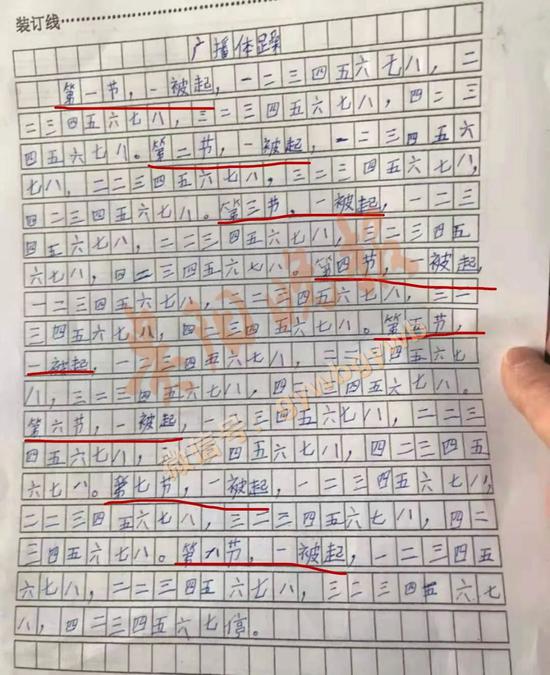 装订线
广播体躁
第一节，一被起，一二三四五六七八，二
二三四五六七八，三二三四五六七八，四二三
四五六七八。第二节，一被起，一二三四五六
七八，二二三四五六七八，三二三四五六七八，
四二三四五六七八。第三节，一被起，一二三
四五六七八，二二三四五六七八，三二三四五
六七八，四二三四五六七八。第四节，一被起，
一二三四五六七八，二二三四五六七八，三二
三四五六七八，四二三四五六七八。第五节，
一被起，一二三四五六七八，二二三四五六七
八，三二三四五六七八，四二三四五六七八。
第六节，一被起，一二三四五六七八，二二三
四五六七八，三二三四五六七八，四二三四五
六七八。第七节，一被起，一二三四五六七八，
二二三四五六七八，三二三四五六七八，四二
三四五六七八。第八节，一被起，一二三四五
六七八，二二三四五六七八，三二三四五六七
八，四二三四五六七停。
微信号：